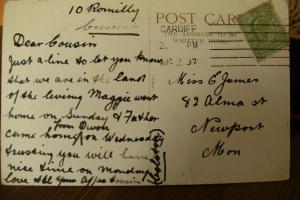 10 Romilly
Crescent
POST CARD
CARDIFF
Dear Cousin
Just a line to let you know
that we are in the land
of the living Maggie went
home on Sunday & Father
from Devon
came home on Wednesday
trusting you will have
nice time on Monday
love
Cousin
Miss E James
82 Alma St
Newport
Mon